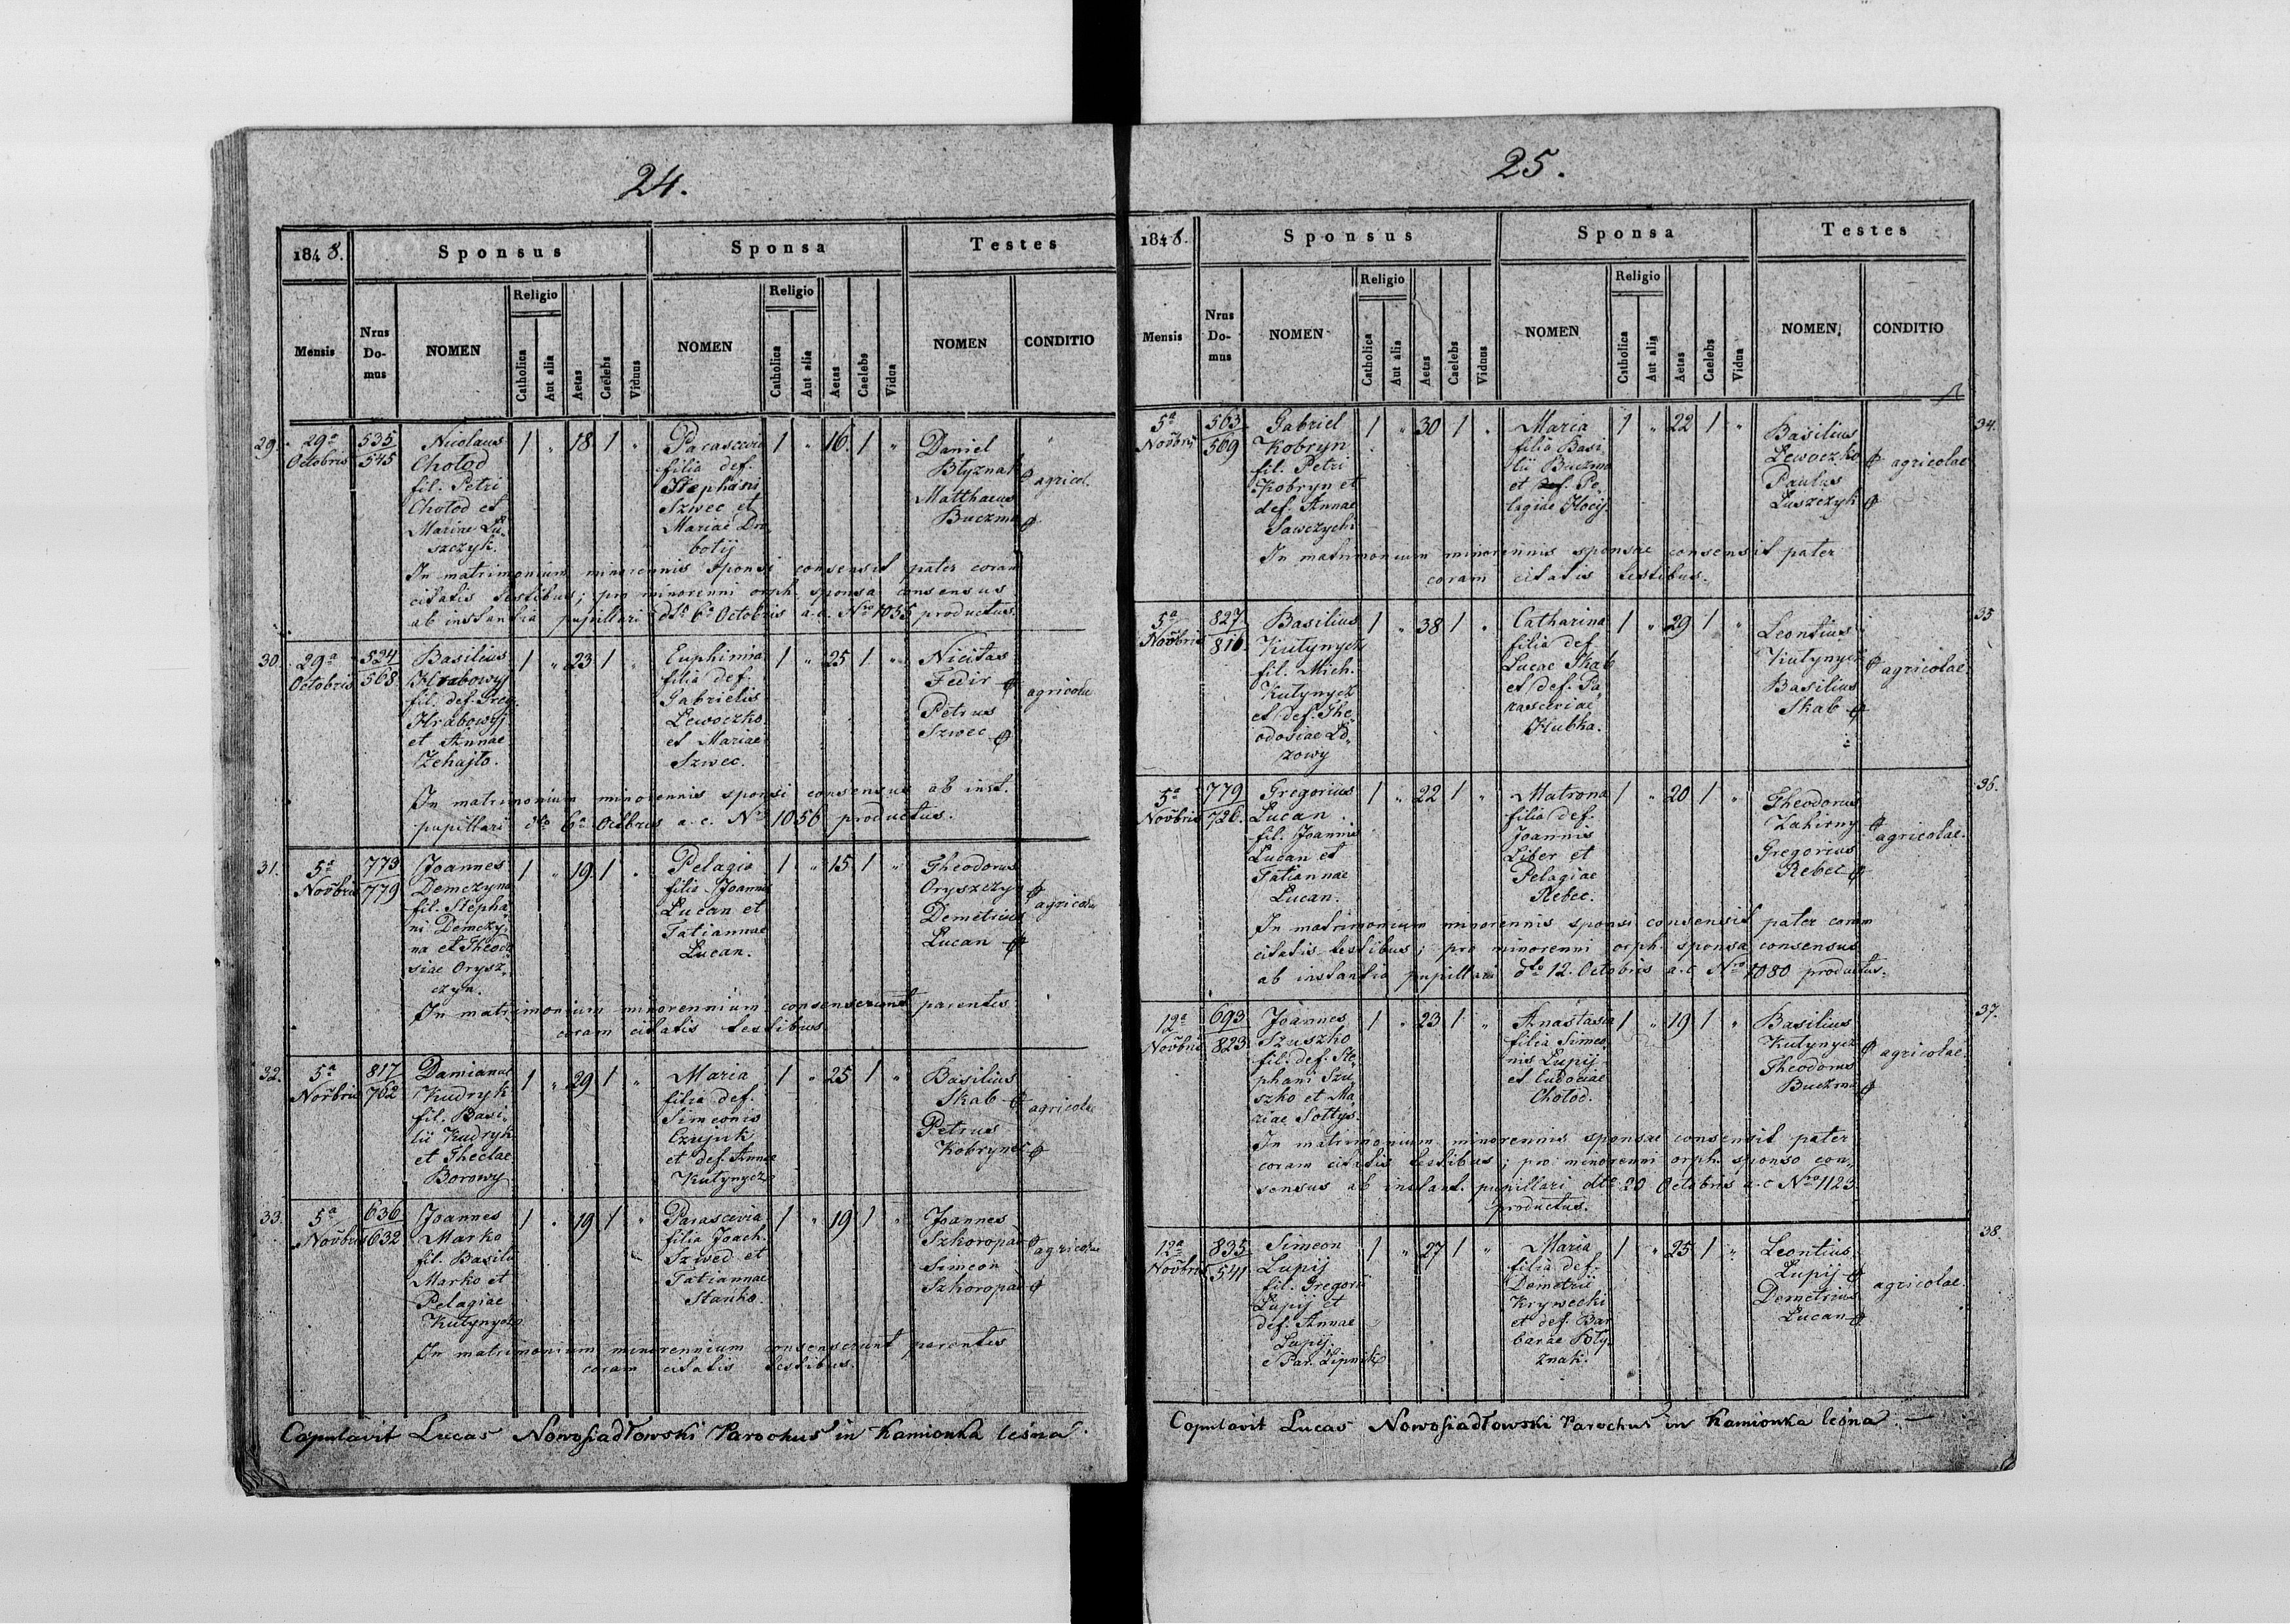 24.
1848. Sponsus Sponsa Testes
Mensis Nrus Do- mus NOMEN Religio Catholica Aut alia Aetas Caelebs Viduus NOMEN Religio Catholica Aut alia Aetas Caelebs Vidua NOMEN CONDITIO
29. 29a Octobris 535 545
Nicolaus
Chotod
fil. Petri
Chotod et
Mariae Lu-
szczyk.
1 " 18 1 "
Parascevia
filia def.
Stephani
Szwec et
Mariae Dro-
botij
1 " 16. 1 "
Daniel
Błyznak
Matthaeus
Buczma
agricol.
In matrimonium minorennis sponsi consensit pater coram
citatis testibus; pro minorenni orph. sponsa consensus
ab instantia pupillari dto 6a Octobris a.c. Nro 1055 productus.
30. 29a Octobris 524 568
Basilius
Hrabowy
fil. def. Greg.
Hrabowyj
et Annae
Zehajło.
1 " 23 1 "
Euphimia
filia def.
Gabrielis
Lewoczko
et Mariae
Szwec.
1 " 25 1 "
Nicitas
Fedir
Petrus
Szwec
agricolae
In matrimonium minorennis sponsi consensus ab inst.
pupillari dto 6a Octbris a.c. Nro 1056 productus.
31. 5a Novbris 773 779
Joannes
Demczyna
fil. Stepha-
ni Demczy-
na et Theodo-
siae Orysz-
czyn.
1 " 19 1 "
Pelagia
filia Joannis
Lucan et
Tatiannae
Lucan.
1 " 15 1 "
Theodorus
Oryszczyn
Demetrius
Lucan
agricolae
In matrimonium minorennium consenserunt parentes
coram citatis testibus.
32. 5a Novbris 817 762
Damianus
Kudryk
fil. Basi-
lii Kudryk
et Theclae
Borowy
1 " 29 1 "
Maria
filia def.
Simeonis
Czujuk
et def. Annae
Kutynycz
1 " 25 1 "
Basilius
Skab
Petrus
Kobrynec
agricolae
33. 5a Novbris 636 632
Joannes
Marko
fil. Basilii
Marko et
Pelagiae
Kutynycz
1 " 19 1 "
Parascevia
filia Joach.
Szwed et
Tatiannae
Stanko.
1 " 19 1 "
Joannes
Szkoropad
Simeon
Szkoropad
agricolae
In matrimonium minorennium consenserunt parentes
coram citatis testibus.
Copulavit Lucas Nowosiadłowski Parochus in Kamionka leśna.
25.
1848. Sponsus Sponsa Testes
Mensis Nrus Do- mus NOMEN Religio Catholica Aut alia Aetas Caelebs Viduus NOMEN Religio Catholica Aut alia Aetas Caelebs Vidua NOMEN CONDITIO
5a Novbris 563 569
Gabriel
Kobryn
fil. Petri
Kobryn et
def. Annae
Sawczych
1 " 30 1 "
Maria
filia Basi-
lii Buczma
et def. Pe-
lagiae Hocij
1 " 22 1 "
Basilius
Lewoczko
Paulus
Luszczyk
agricolae
34.
In matrimonium minorennis sponsae consensit pater
coram citatis testibus.
5a Novbris 827 816
Basilius
Kutynycz
fil. Mich.
Kutynycz
et def. The-
odosiae Ło-
zowy
1 " 38 1 "
Catharina
filia def.
Lucae Skab
et def. Pa-
rasceviae
Hubka.
1 " 29 1 "
Leontius
Kutynycz
Basilius
Skab
agricolae
35
5a Novbris 779 726.
Gregorius
Lucan
fil. Joannis
Lucan et
Tatiannae
Lucan.
1 " 22 1 "
Matrona
filia def.
Joannis
Liber et
Pelagiae
Rebec.
1 " 20 1 "
Theodorus
Zahirny
Gregorius
Rebec
agricolae.
36.
In matrimonium minorennis sponsi consensit pater coram
citatis testibus; pro minorenni orph. sponsa consensus
ab instantia pupillari dto 12. Octobris a.c Nro 1080 productus.
12a Novbris 693 823
Joannes
Szuszko
fil. def. Ste-
phani Szu-
szko et Ma-
riae Sołtys.
1 " 23 1 "
Anastasia
filia Simeo-
nis Lupij
et Eudociae
Chotod.
1 " 19 1 "
Basilius
Kutynycz
Theodorus
Buczma
agricolae.
37.
In matrimonium minorennis sponsae consensit pater
coram citatis testibus; pro minorenni orph. sponso con-
sensus ab instant. pupillari dto 20 Octobris a.c Nro 1123
productus.
12a Novbris 835 541
Simeon
Lupij
fil. Gregorii
Lupij et
def. Annae
Lupij.
e Par. Lipnik
1 " 27 1 "
Maria
filia def.
Demetrii
Krywecki
et def. Bar-
barae Bły-
znak.
1 " 25 1 "
Leontius
Lupij
Demetrius
Lucan
agricolae.
38.
Copulavit Lucas Nowosiadłowski Parochus in Kamionka leśna.